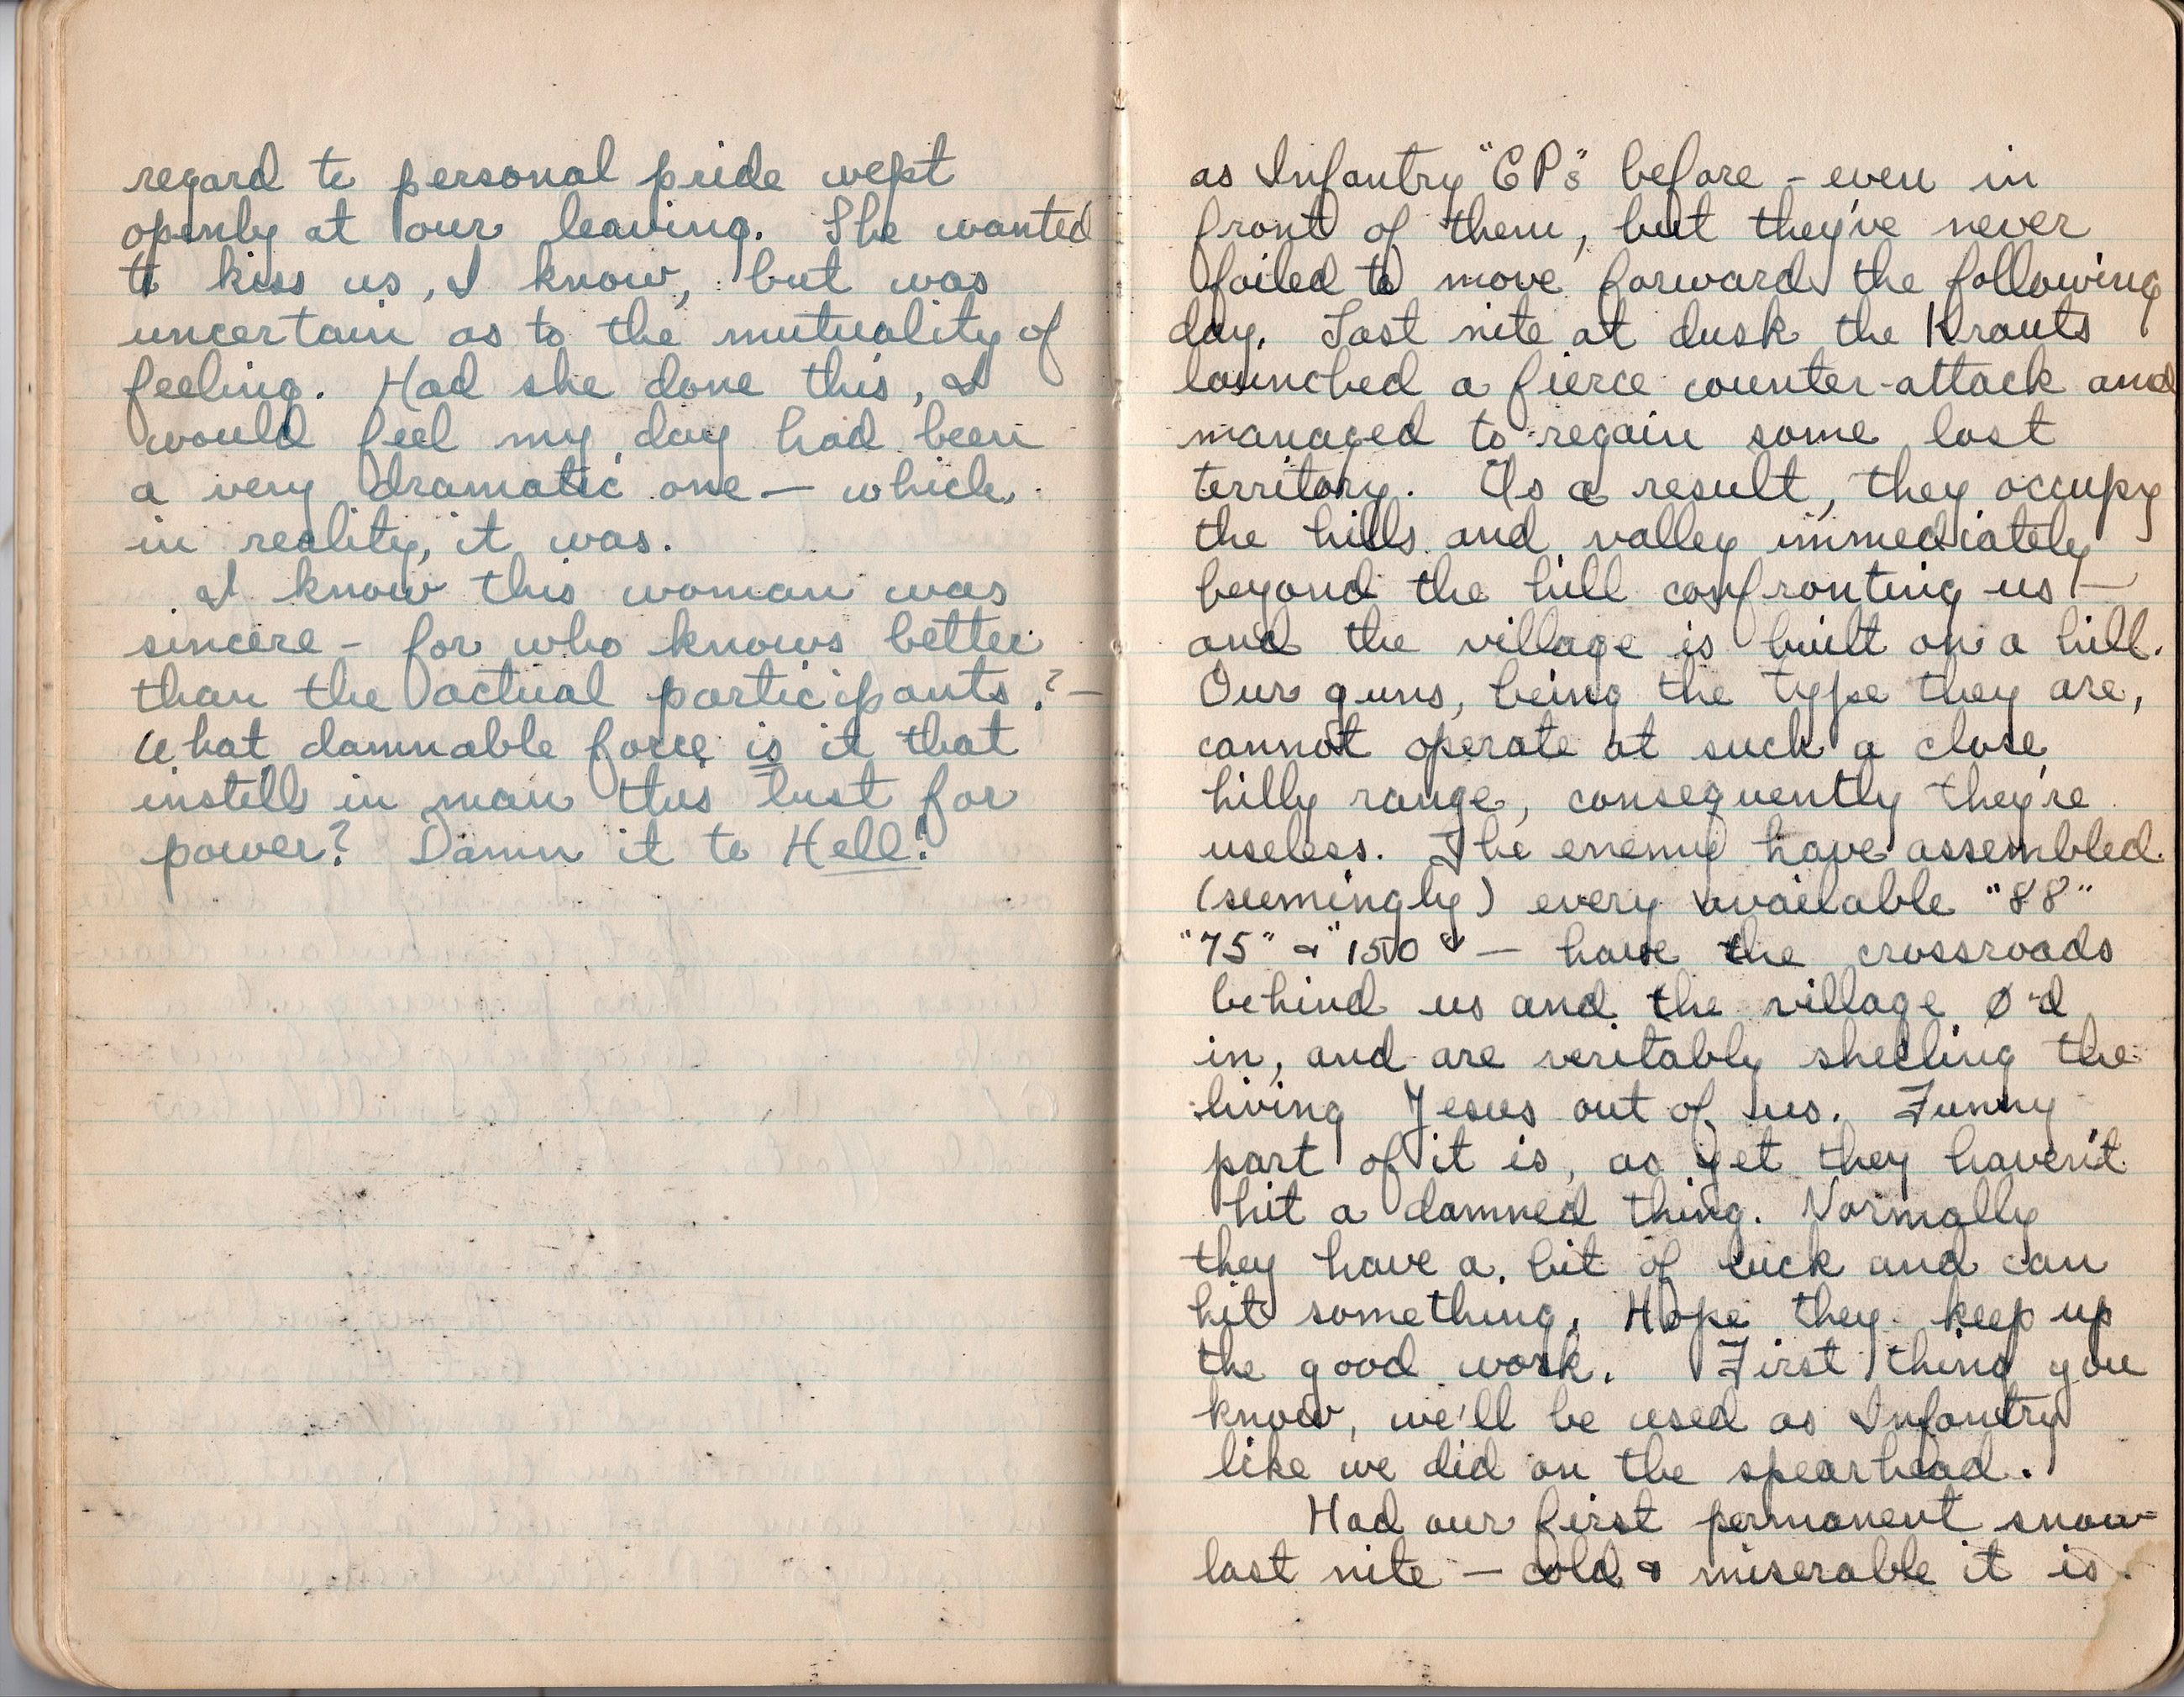 regard to personal pride wept
openly at our leaving. She wanted
to kiss us, I know, but was
uncertain as to the mutuality of
feeling. Had she done this, I
would feel my day had been
a very dramatic one — which,
in reality, it was.
I know this woman was
sincere - for who knows better
than the actual participants? —
What damnable force is it that
instills in man this lust for
power? Damn it to Hell!
as Infantry "CPs" before - even in
front of them, but they've never
failed to move forward the following
day. Last nite at dusk the Krauts
launched a fierce counter-attack and
managed to regain some lost
territory. As a result, they occupy
the hills and valley immediately
beyond the hill confronting us —
and the village is built on a hill.
Our guns, being the type they are,
cannot operate at such a close,
hilly range, consequently they're
useless. The enemy have assembled
(seemingly) every available "88"
"75" & "150" — have the crossroads
behind us and the village Ø'd
in, and are veritably shelling the
living Jesus out of us. Funny
part of it is, as yet they haven't
hit a damned thing. Normally
they have a bit of luck and can
hit something. Hope they keep up
the good work. First thing you
know, we'll be used as Infantry
like we did on the spearhead.
Had our first permanent snow
last nite — cold & miserable it is.